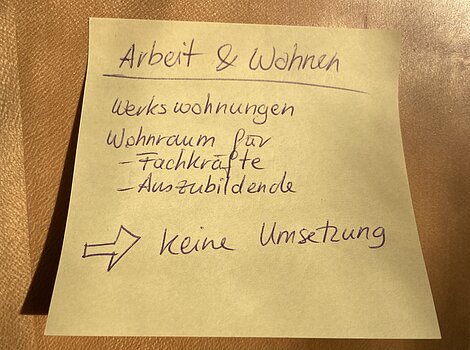 Arbeit & Wohnen
Werkswohnungen
Wohnraum für
- Fachkräfte
- Auszubildende
⇨ keine Umsetzung